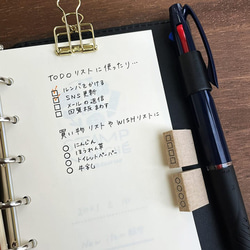 TODOリストに使ったり…
ルンバをかける
SNS更新
メールの返信
回覧板まわす
買い物リストやWISHリストに
にんじん
ほうれん草
トイレットペーパー
牛乳